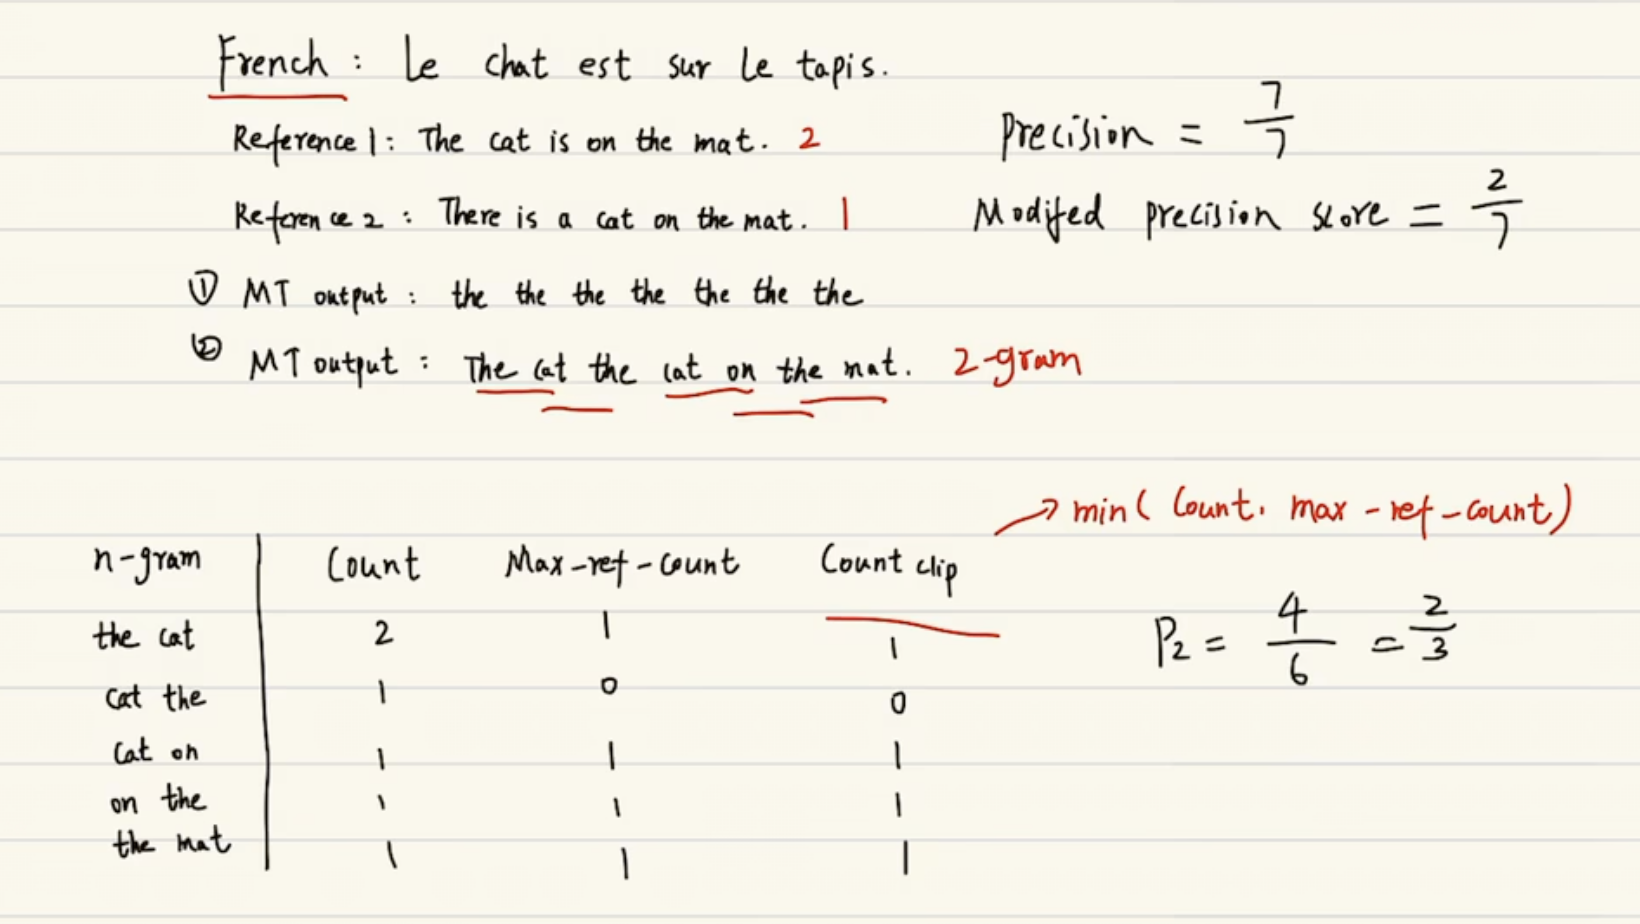 French : Le chat est sur Le tapis.
Reference 1 : The cat is on the mat. 2
Precision = 7/7
Reference 2 : There is a cat on the mat. 1
Modifed precision score = 2/7
① MT output : the the the the the the the
② MT output : The cat the cat on the mat. 2-gram
min( Count, max-ref-count)
n-gram Count Max-ref-count Count clip
the cat 2 1 1
P2 = 4/6 = 2/3
cat the 1 0 0
cat on 1 1 1
on the 1 1 1
the mat 1 1 1